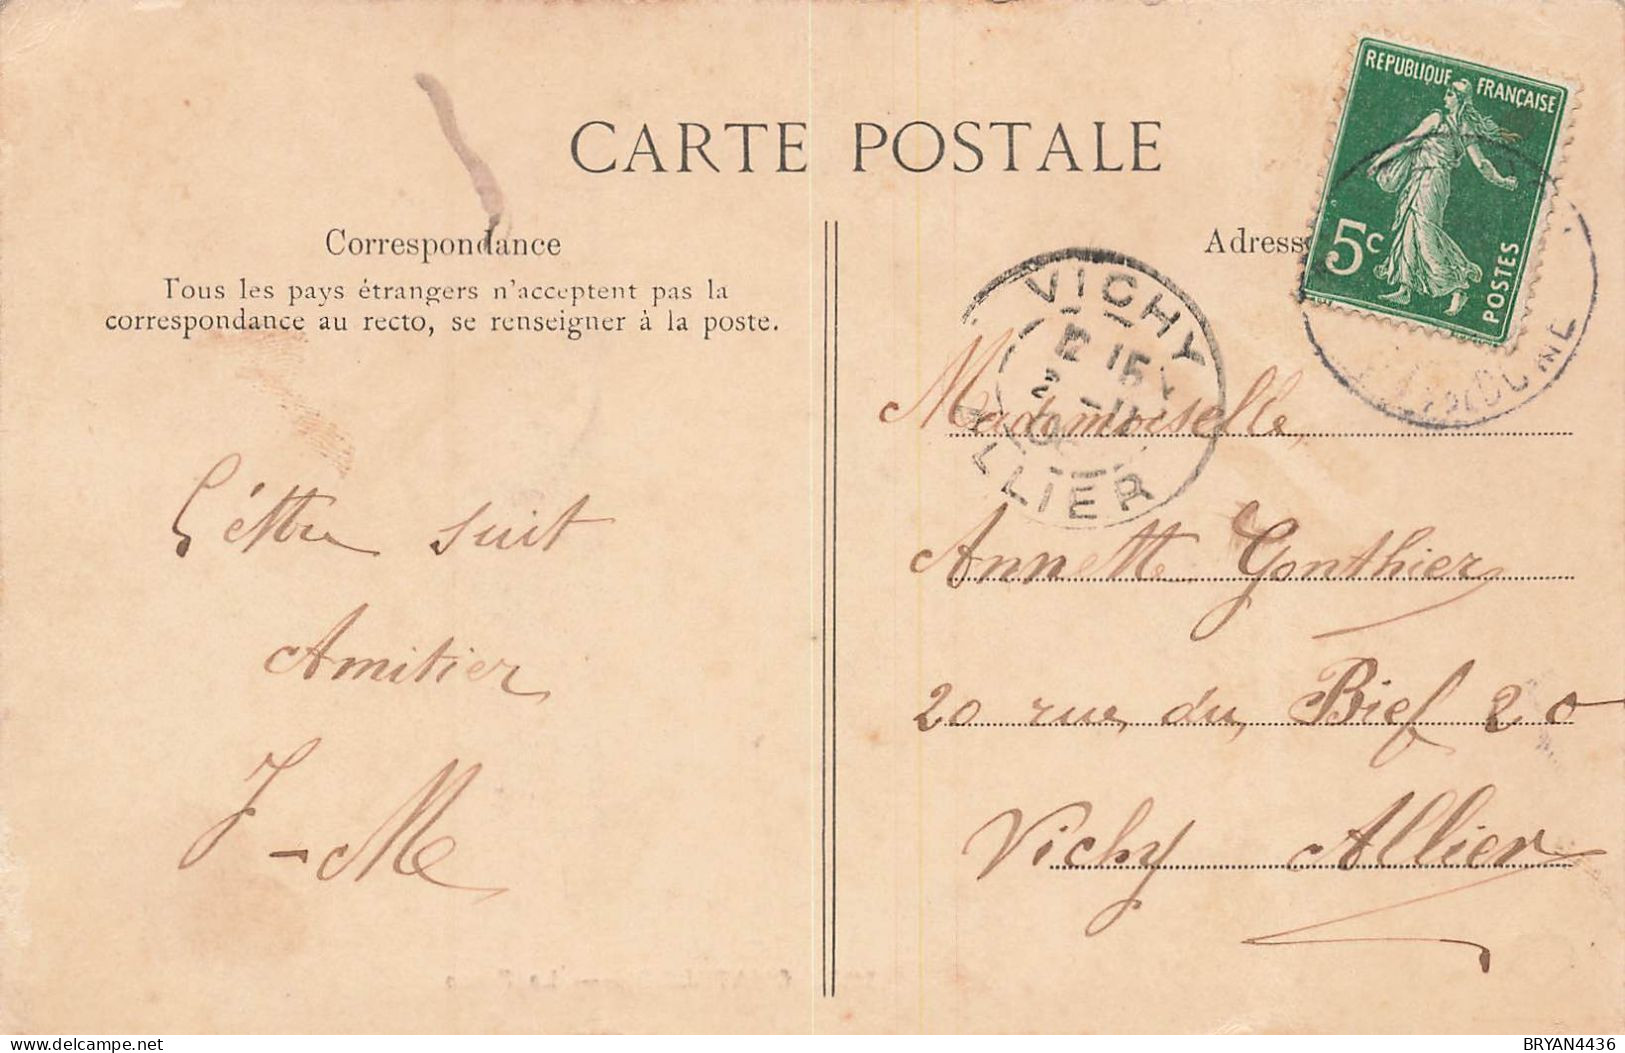 CARTE POSTALE
Correspondance
Tous les pays étrangers n'acceptent pas la
correspondance au recto, se renseigner à la poste.
Lettre suit
Amitier
J-M
Adresse
REPUBLIQUE FRANÇAISE
5c
POSTES
VICHY
ALLIER
Mademoiselle
Annette Gonthier
20 rue du Bief 20
Vichy Allier
delcampe.net
BRYAN4436